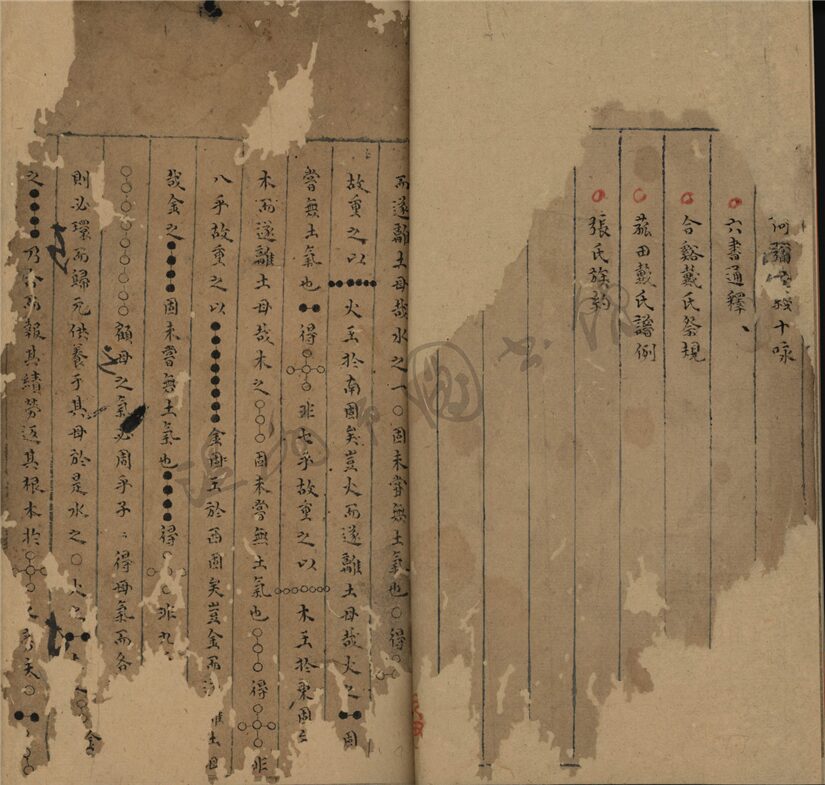 十咏
六書通釋
合谿戴氏祭規
菰田戴氏譜例
張氏族約
而遂離土母哉水之一○固未嘗無土氣也○得
故重之以●●●●●●火王於南固矣豈火而遂離土母哉火之●●固
嘗無土氣也●●得非七乎故重之以○○○○○○○木王於東固
木而遂離土母哉木之○○○固未嘗無土氣也○○○得非
八乎故重之以●●●●●●●●金固王於西固矣豈金而土母
哉金之●●●●固未嘗無土氣也●●●●得非
○○○○○○○○○顧母之氣必周乎子〻得母氣而各
則必環而歸死供養于其母於是水之○火之●●
之●●●●乃合而報其績勞返其根本於